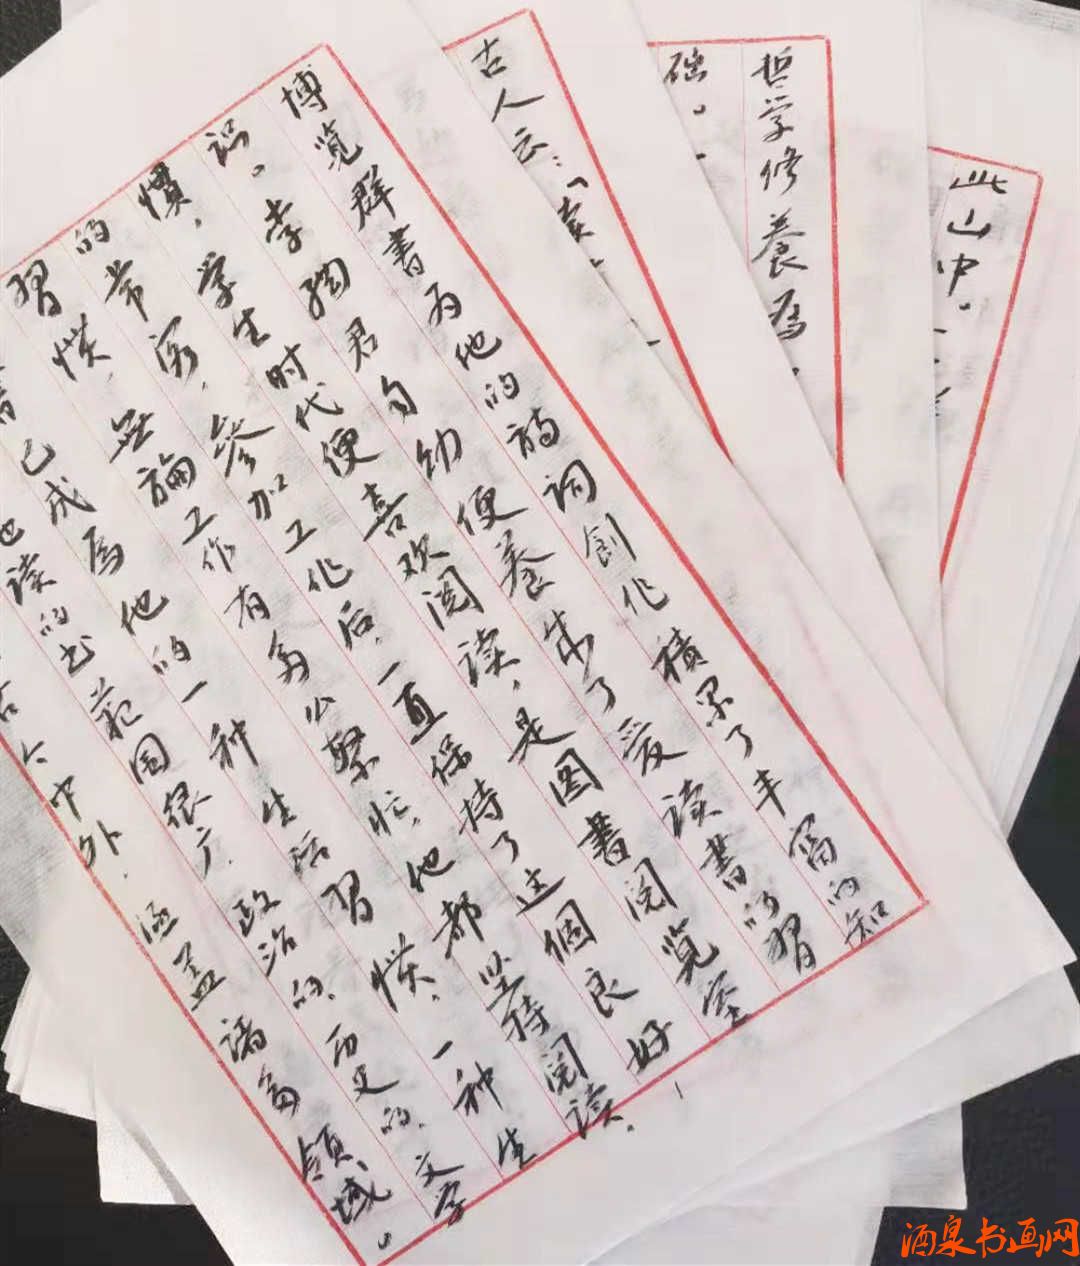 博览群書为他的诗词創作積累了丰富的知
识。李陶君自幼便養成了爱读書的習
惯，学生时代便喜欢阅读，是图書阅览室
的常客，參加工作后，一直保持了这個良好
習惯，無論工作有多么繁忙，他都坚持阅读，
已成為他的一种生活習惯，一种生
他读的书范围很广，政治的、历史的、文学
古今中外，涵盖诸多領域。
古人云：「读
础。
哲学修養為
此山中。
酒泉书画网